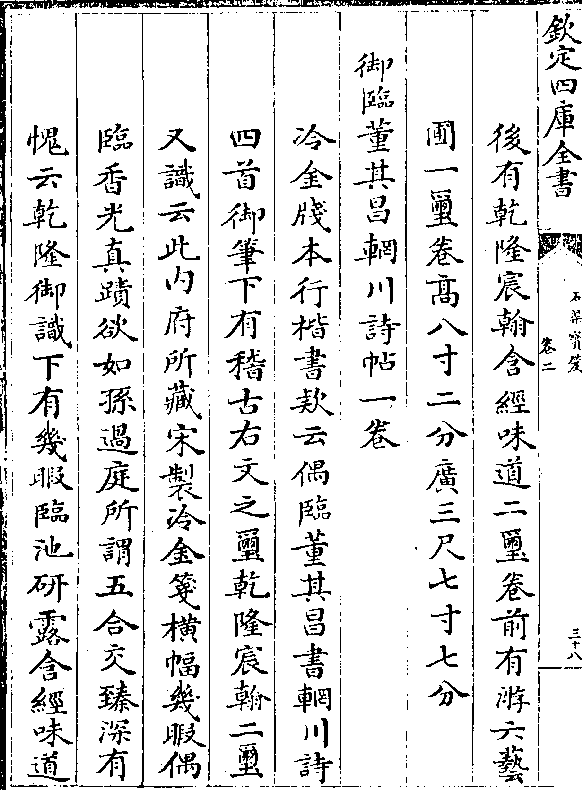 欽定四庫全書
石渠寳笈
卷二
三十八
後有乾隆宸翰含經味道二璽卷前有游六藝
圃一璽卷髙八寸二分廣三尺七寸七分
御臨董其昌輞川詩帖一卷
冷金牋本行楷書欵云偶臨董其昌書輞川詩
四首御筆下有稽古右文之璽乾隆宸翰二璽
又識云此内府所藏宋製冷金箋横幅幾暇偶
臨香光真蹟欲如孫過庭所謂五合交臻深有
愧云乾隆御識下有幾暇臨池研露含經味道